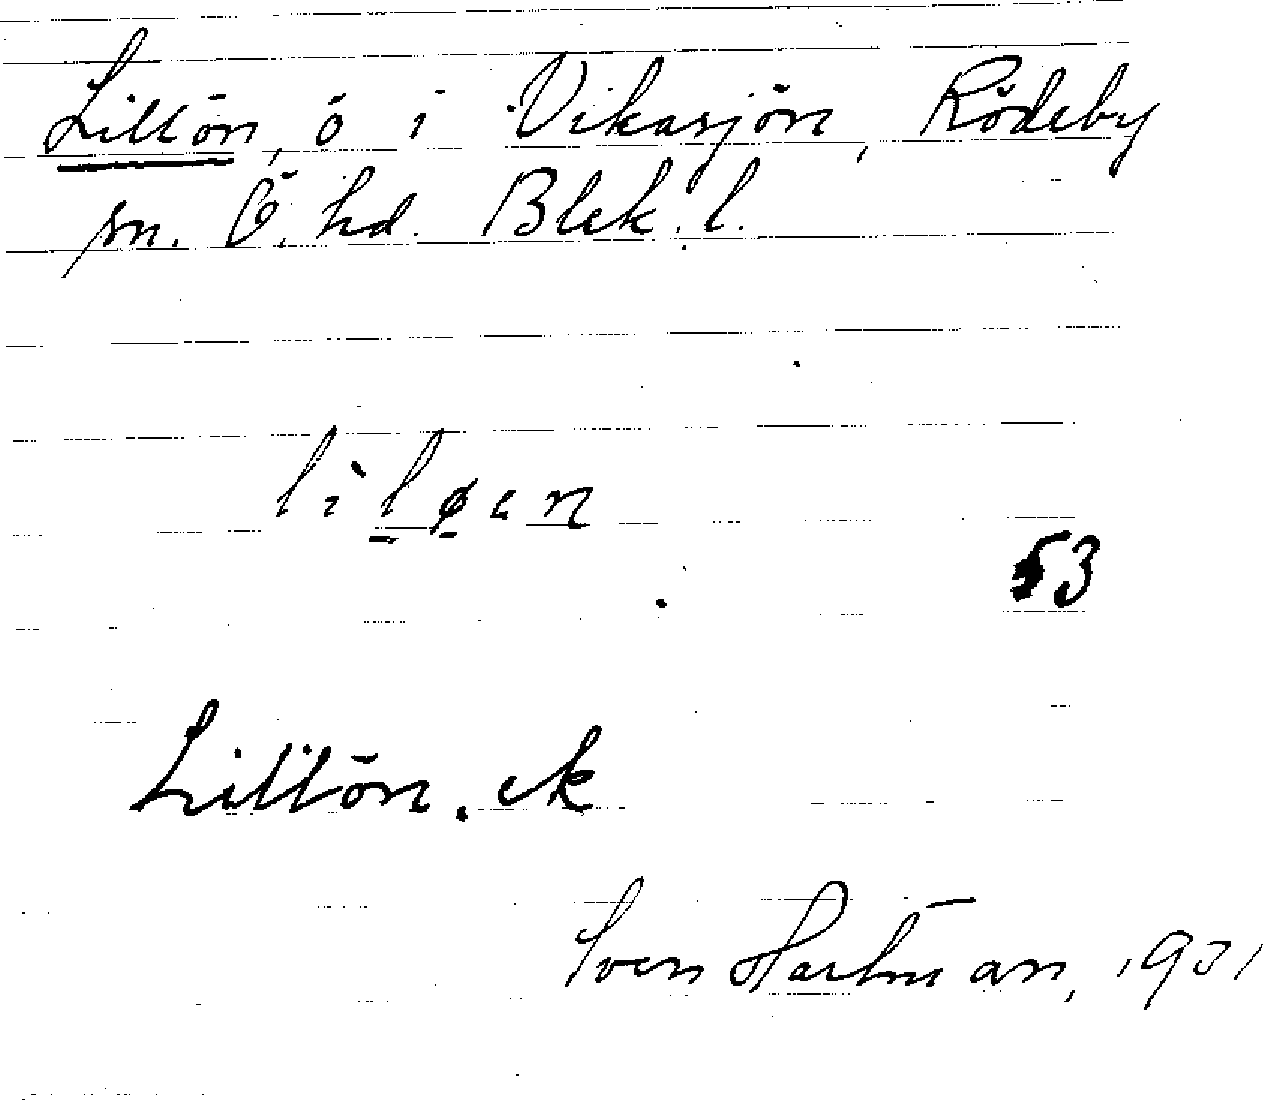 Lillön, ö i Vikasjön, Rödeby
sn. Ö. hd. Blek. l.
lìløen
53
Lillön. ek
Sven Hartman, 1931